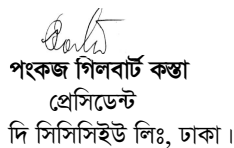 পংকজ গিলবার্ট কস্তা
প্রেসিডেন্ট
দি সিসিসিইউ লিঃ, ঢাকা।